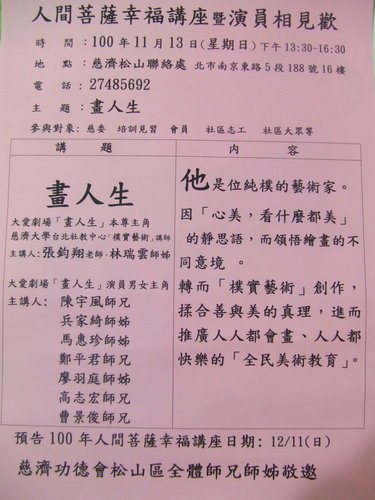 人間菩薩幸福講座暨演員相見歡
時 間：100年11月13日(星期日)下午13:30-16:30
地 點：慈濟松山聯絡處 北市南京東路5段188號16樓
電 話：27485692
主 題：畫人生
參與對象：慈委 培訓見習 會員 社區志工 社區大眾等
講 題
內 容
畫人生
大愛劇場「畫人生」本尊主角
慈濟大學台北社教中心「樸實藝術」講師
主講人：張鈞翔老師、林瑞雲師姊
大愛劇場「畫人生」演員男女主角
主講人：陳宇風師兄
兵家綺師姊
馬惠珍師姊
鄭平君師兄
廖羽庭師姊
高志宏師兄
曹景俊師兄
他是位純樸的藝術家。
因「心美，看什麼都美」
的靜思語，而領悟繪畫的不
同意境 。
轉而「樸實藝術」創作，
揉合善與美的真理，進而
推廣人人都會畫、人人都
快樂的「全民美術教育」。
預告100年人間菩薩幸福講座日期：12/11(日)
慈濟功德會松山區全體師兄師姊敬邀